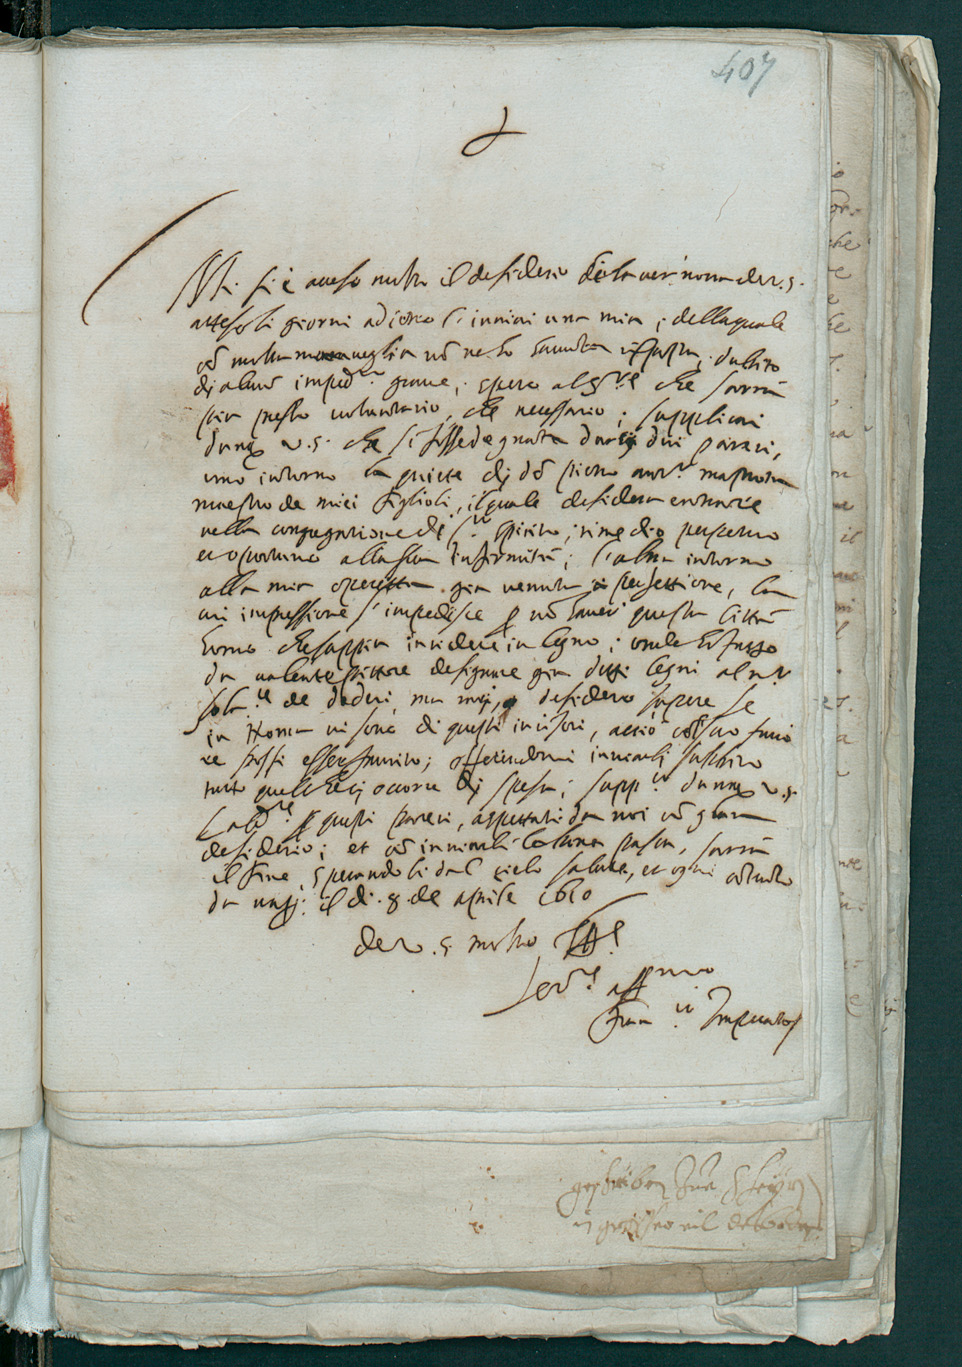 407
Mi si è acceso molto il desiderio de haver nova de V. S.
atteso li giorni adietro l' inviai una mia; della quale
cõ molta maraveglia nõ ne ho havuta risposta, dubito
di alcun imped.to grave, spero al S.re che sarrà
più presto voluntario, che necessario; supplicai
dunq V. S. che si fosse degnata darci dui pareri,
uno intorno la quiete di dõ Pietro
maestro de miei figlioli, il quale desidera entrare
nella congregatione di S.to Spirito, rimedio perpetuo
et oportuno alla sua infirmità; l' altra intorno
alla mia operetta già venuta a perfettione, la
cui impressione s' impedisce p nõ haver questa Città
homo che sappia incidere in legno; onde hò fatto
da valente pittore designare già detti legni al n.ro
solo de doderi, ma mi desidero sapere se
in Roma vi sono di questi incisori, acciò cõ suo favo
re possi esser servito; offerendomi inviarli subbito
tutto quel che ci occorre di spesa; supp.co dunq V. S.
p questi pareri, aspettati da noi cõ gran
desiderio; et cõ inviarli la bona pasca, farrò
il fine, sperandoli dal cielo salute, et ogni cõtento
da Nap: il dì .8. de Aprile 1610
de V. S. molto Ill.e
Ser.re aff.mo
Fran.co Imperato
geschriben